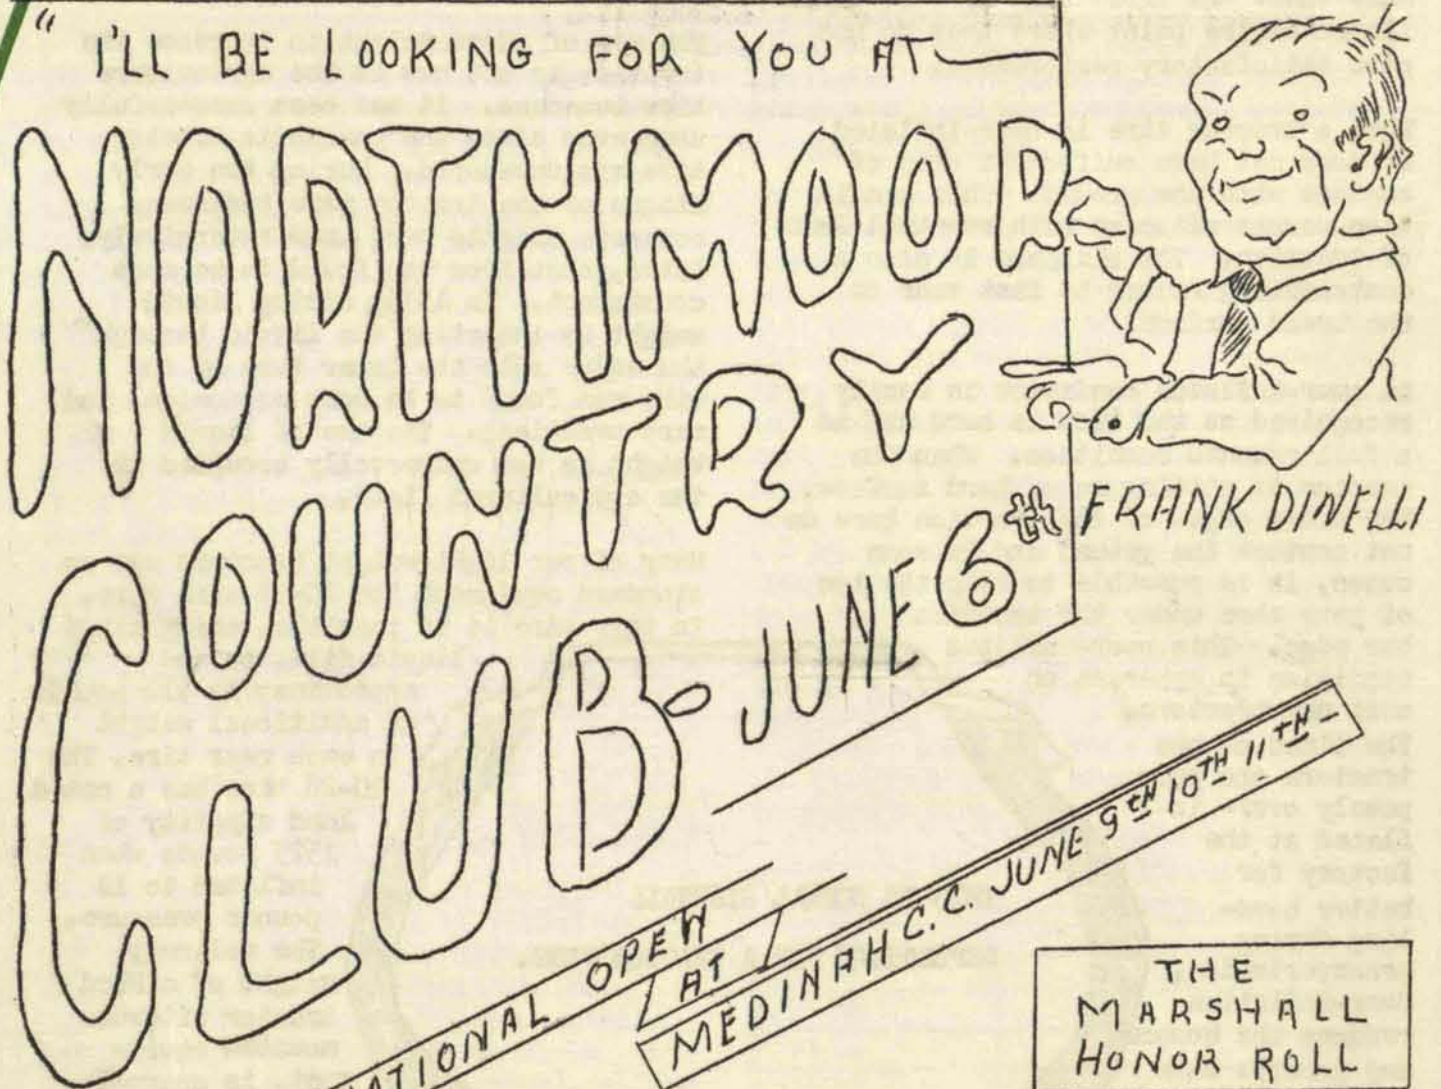 "I'LL BE LOOKING FOR YOU AT
NORTHMOOR
COUNTRY
CLUB - JUNE 6th
FRANK DINELLI
NATIONAL OPEN
AT
MEDINAH C.C. JUNE 9th 10TH 11TH-
THE
MARSHALL
HONOR ROLL